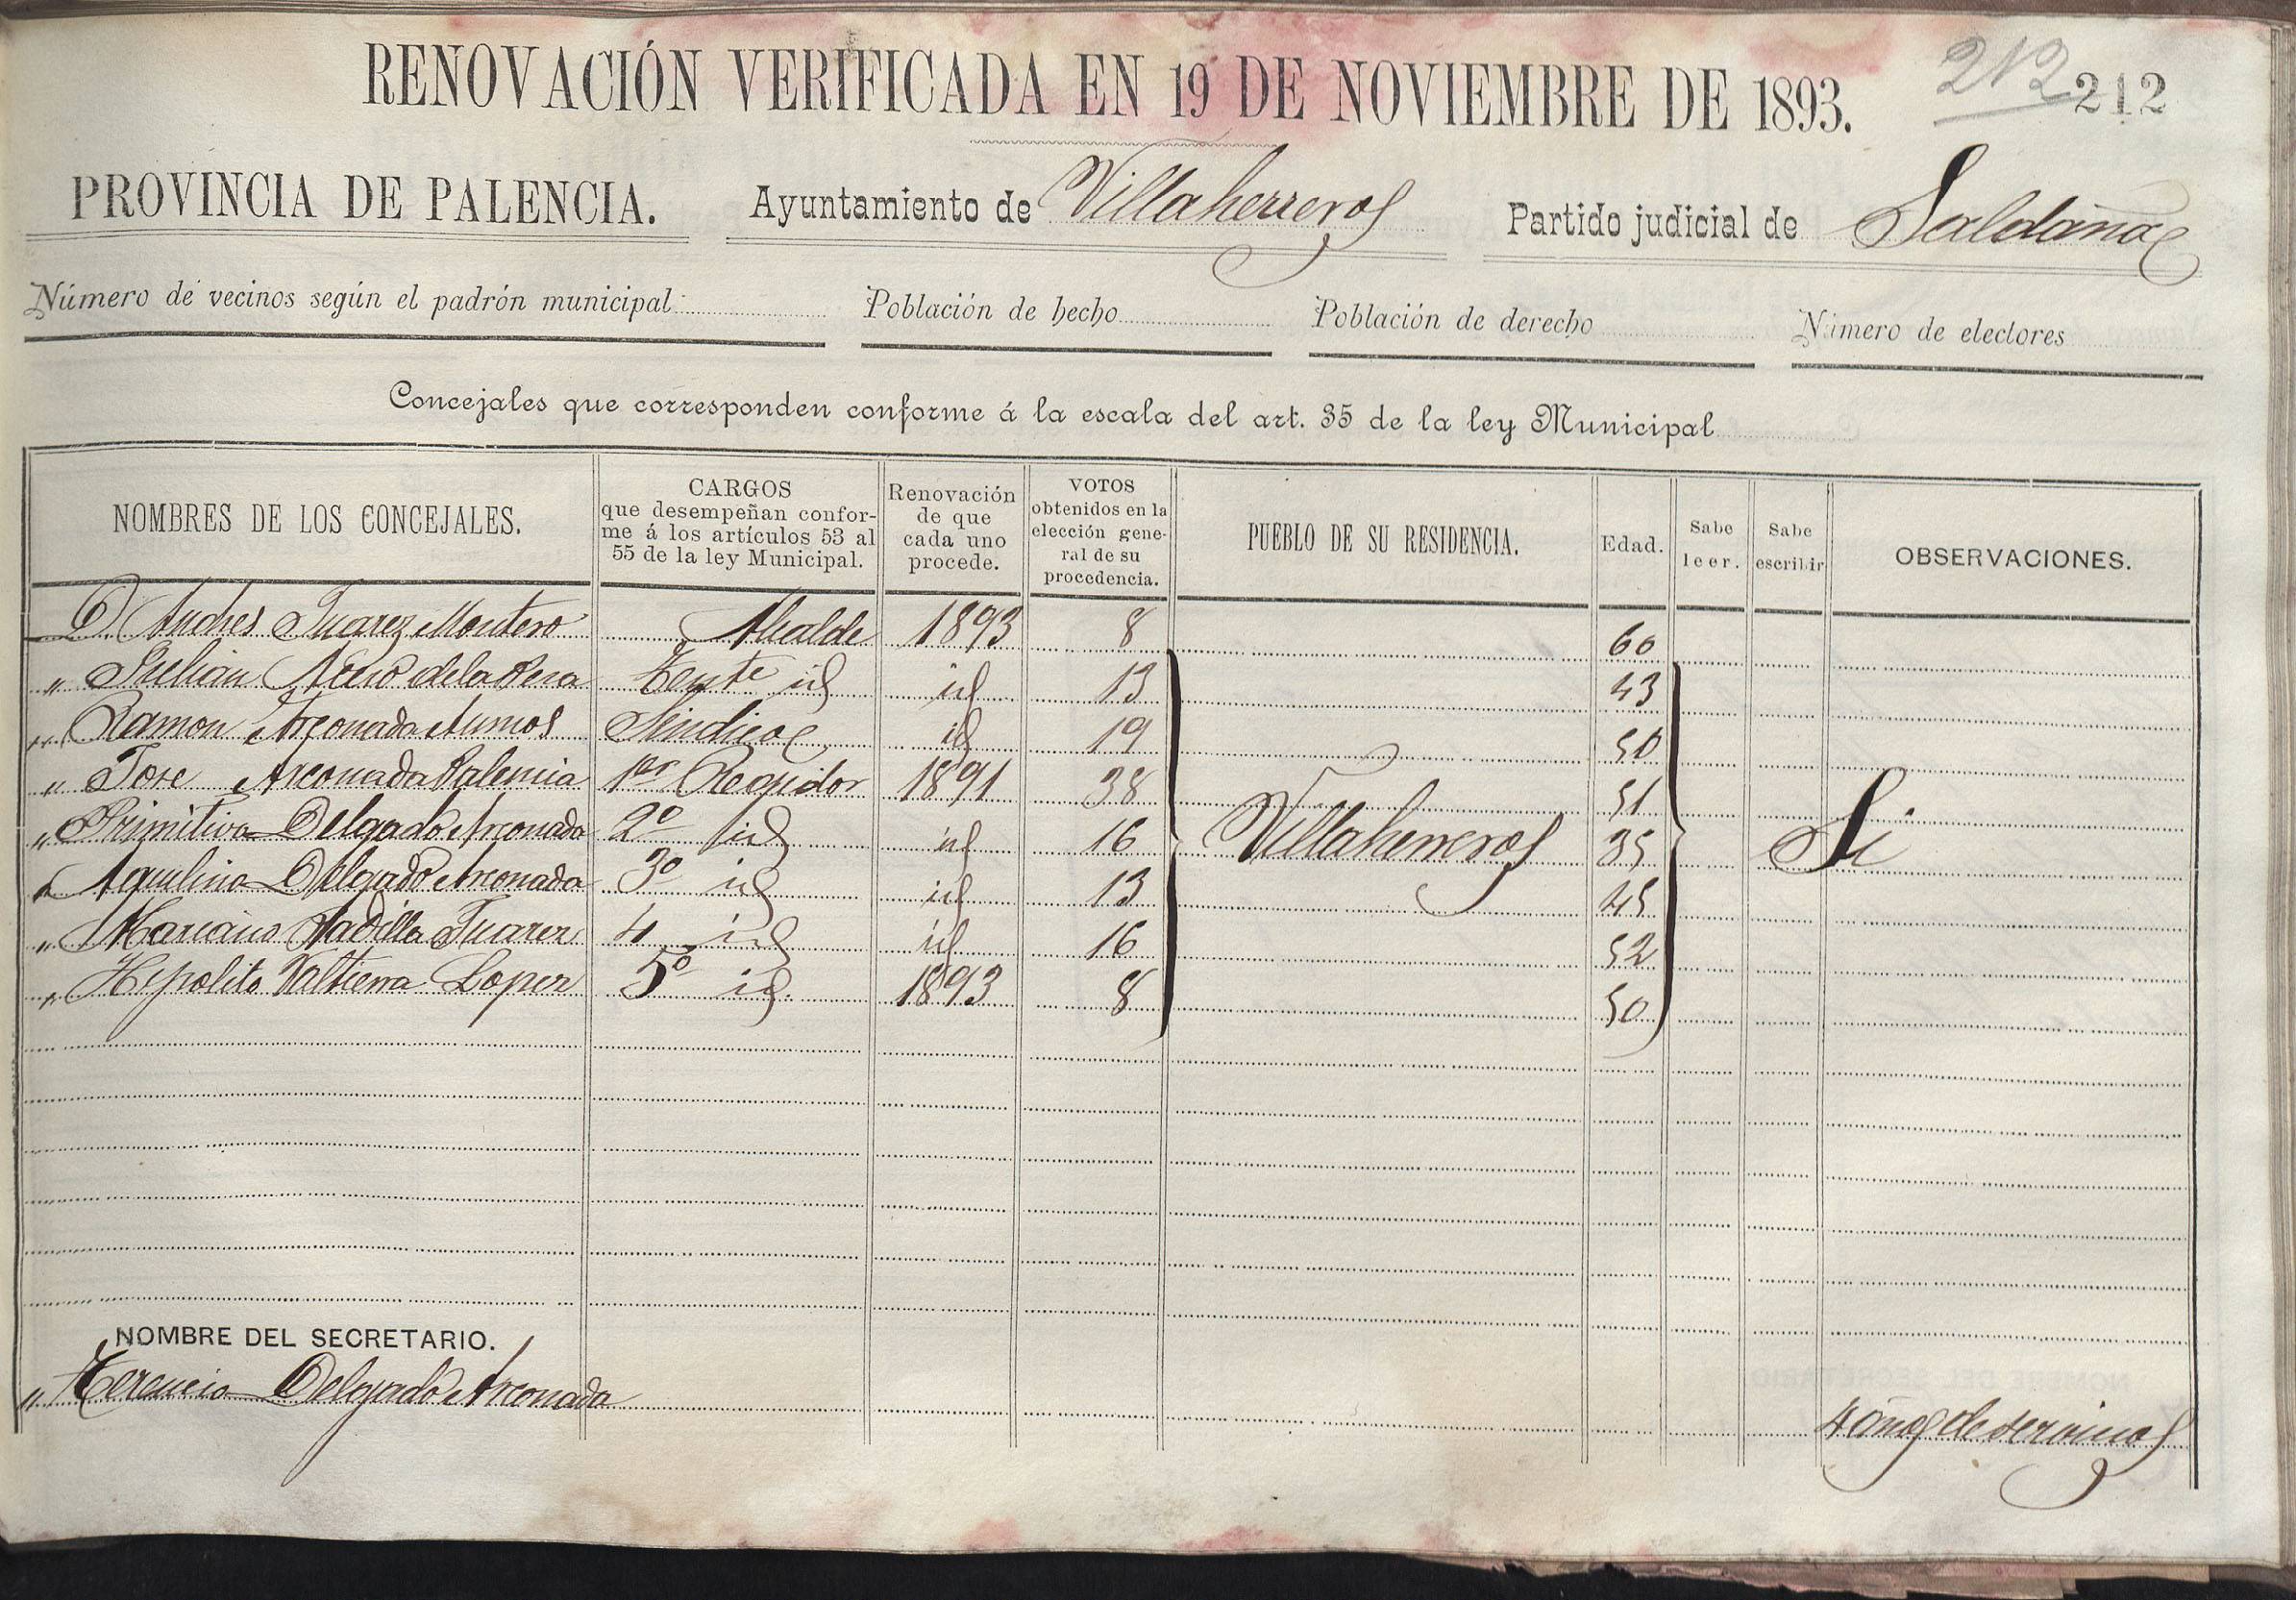 RENOVACIÓN VERIFICADA EN 19 DE NOVIEMBRE DE 1893. 212 212
PROVINCIA DE PALENCIA. Ayuntamiento de Villaherreros Partido judicial de Saldaña
Número de vecinos según el padrón municipal Población de hecho Población de derecho Número de electores
Concejales que corresponden conforme á la escala del art. 35 de la ley Municipal
NOMBRES DE LOS CONCEJALES.
CARGOS
que desempeñan confor-
me á los artículos 53 al
55 de la ley Municipal.
Renovación
de que
cada uno
procede.
VOTOS
obtenidos en la
elección gene-
ral de su
procedencia.
PUEBLO DE SU RESIDENCIA.
Edad.
Sabe
leer.
Sabe
escribir
OBSERVACIONES.
D. Andres Juarez Montero Alcalde 1893 8 60
" Julian de la id id 13 43
" Ramon Arconada Sindico id 19 50
" Jose Arconada Palencia 1er Regidor 1891 38 51
" Primitivo Delgado Arconada 2º id id 16 Villaherreros 35 Si
" Aquilino Delgado Arconada 3º id id 13 45
" Mariano Padilla Juarez 4 id id 16 52
" Hipolito Valtierra Lopez 5º id. 1893 8 50
NOMBRE DEL SECRETARIO.
" Terencio Delgado Arconada 4 años de servicios